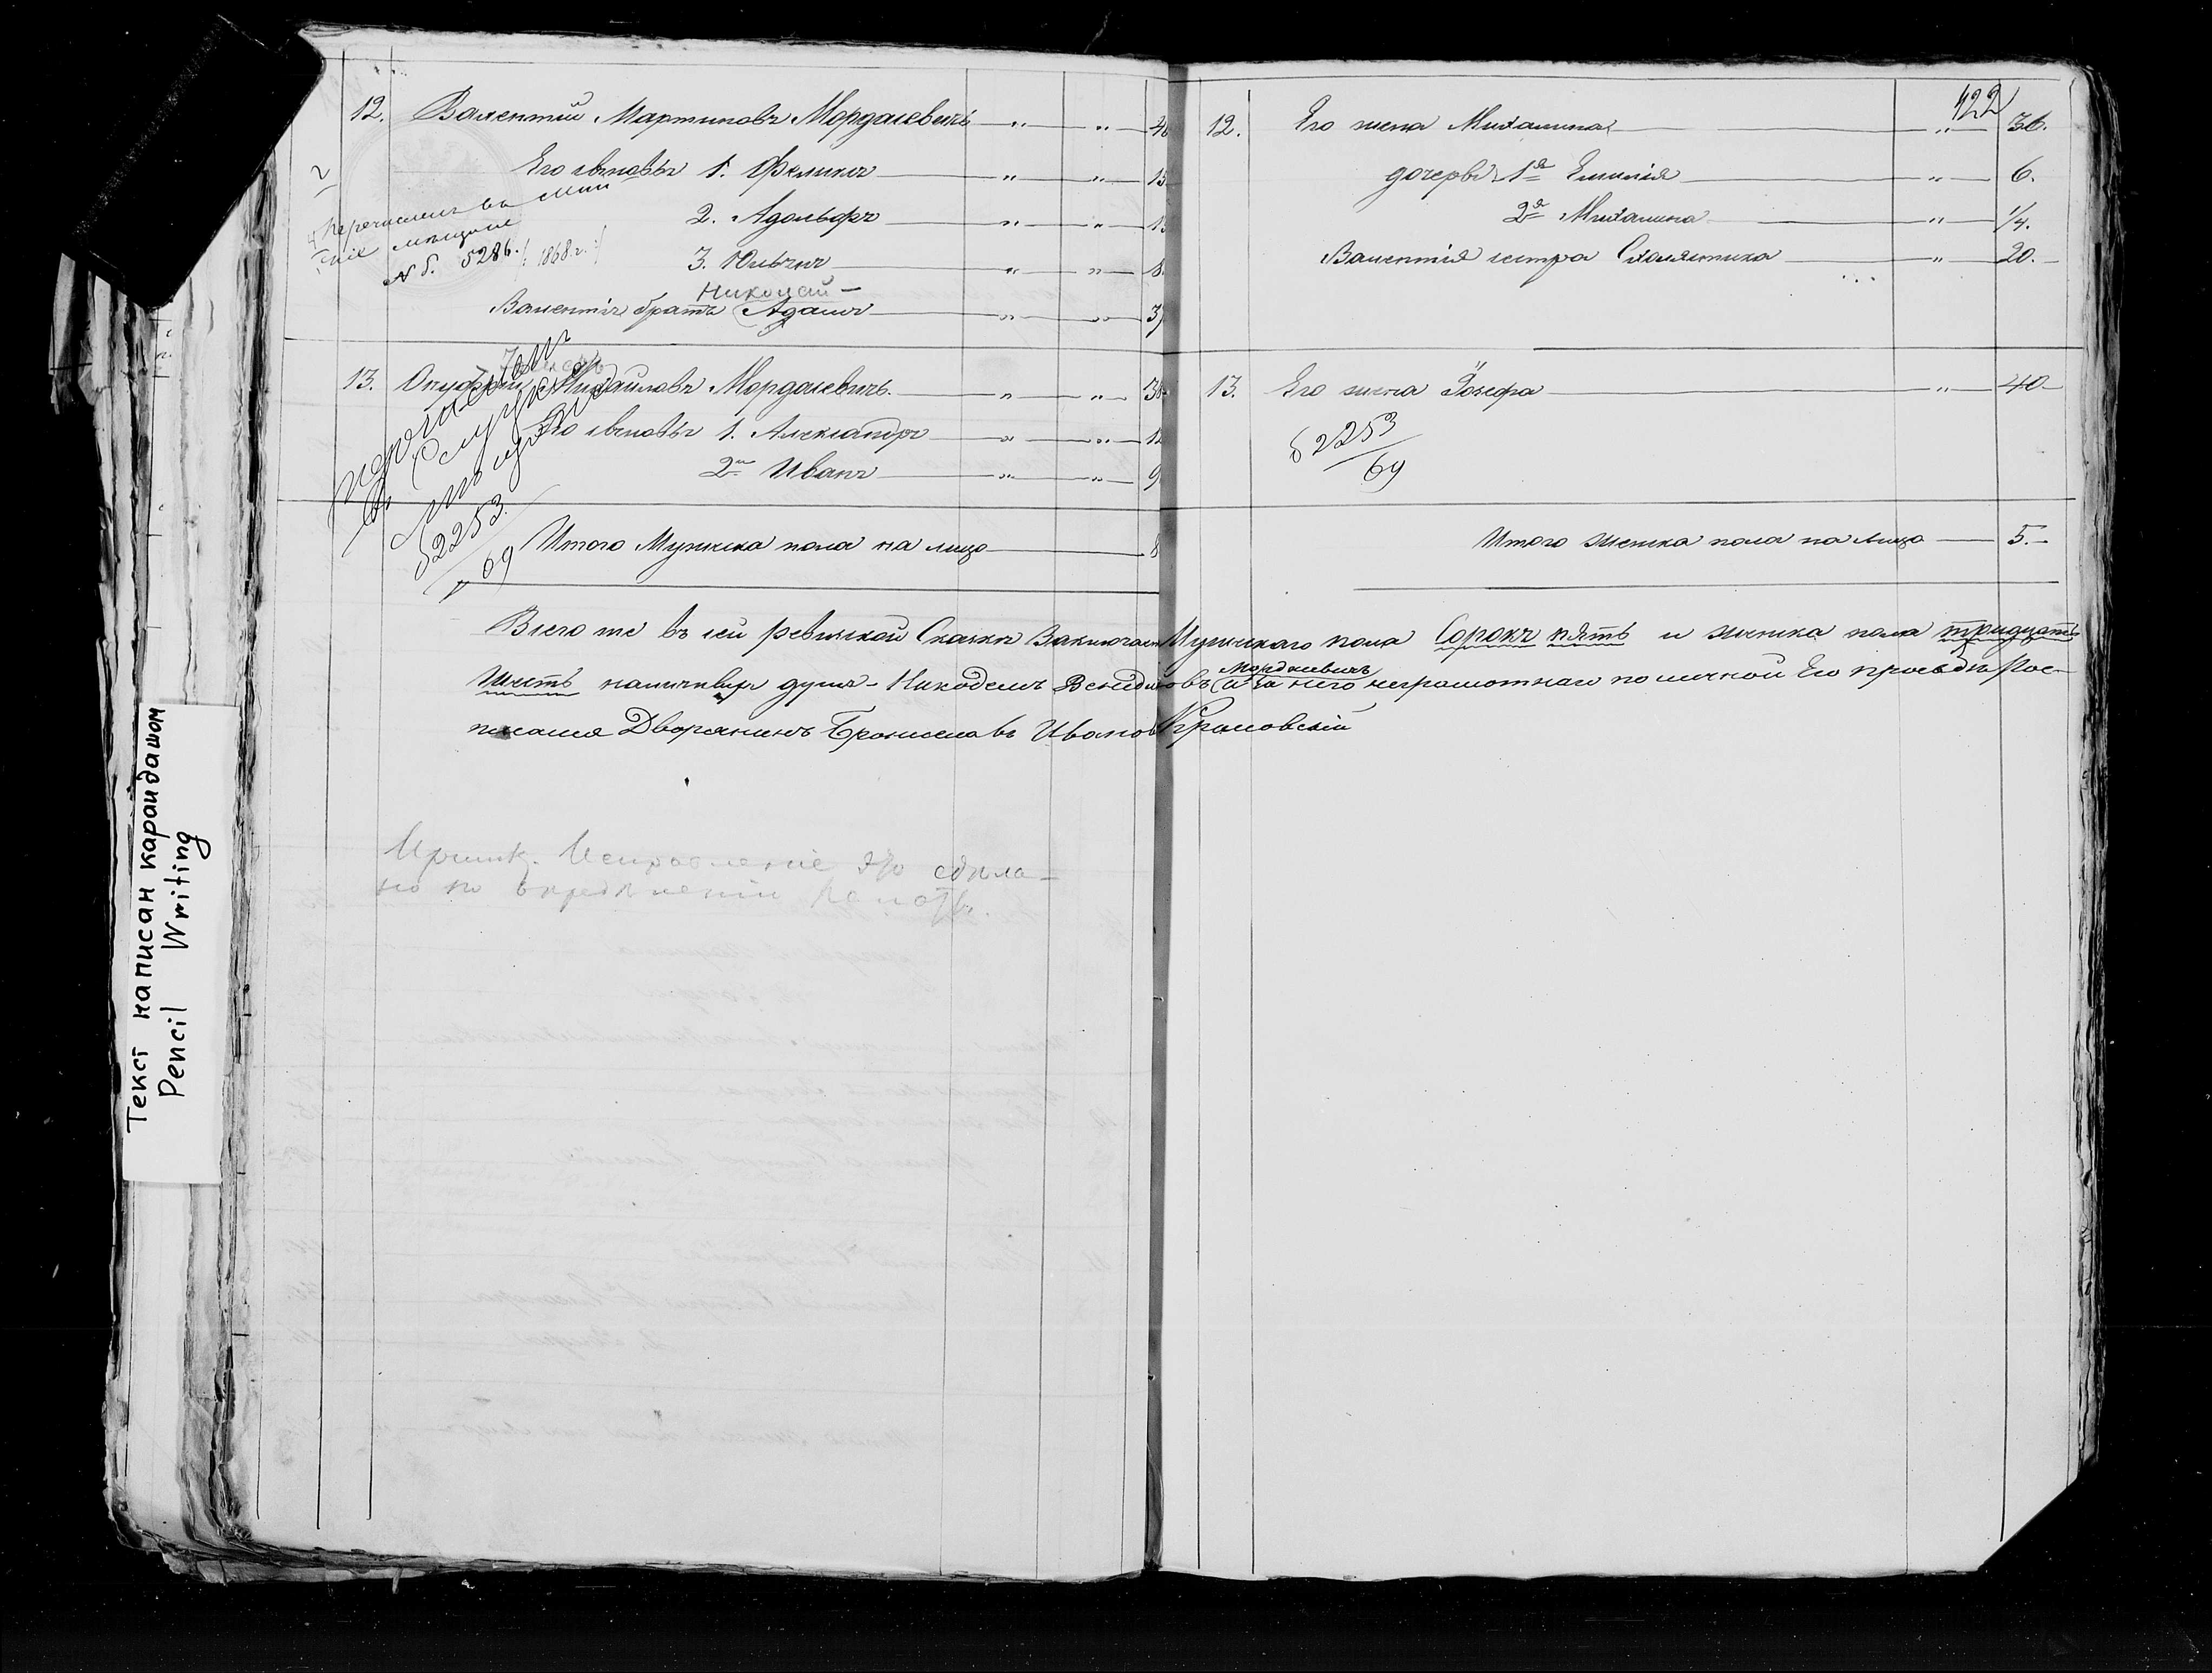 12. Валентій Мартиновъ Мордасевичъ " " 4
Его сыновья 1. Феликсъ " " 15
2. Адольфъ " " 13
3. Юльянъ " " 8
Николай —
Валентія братъ Адамъ " " 37
перечисленъ въ Мин
скіе мещане
№ б. 5286. /: 1868 г. :/
13. Онуфрій Михайловъ Мордасевичъ. " " 38
Его сыновья 1. Александръ " " 12
2й Иванъ " " 9
перечислен
въ Слуцкіе
мещане
б 2253
69
Итого Мужеска пола на лицо 8
422
12. Его жена Михалина " 36.
дочери 1я Емилія " 6.
2я Михалина " 1/4.
Валентія сестра Схолястика " 20.
13. Его жена Іозефа " 40
б 2253
69
Итого женска пола на лицо 5.
Всего же въ сей ревизской Сказкѣ Заключает Мужескаго пола Сорокъ пять и женска пола тридцать
шесть наличныхъ душъ - Никодемъ Венедиктовъ Мордасевичъ (а за него неграмотнаго по личной Его прозьбѣ Рос-
писался Дворянинъ Брониславъ Ивановъ
Примѣч. Исправленіе это сдѣла-
но по опредѣленію
Текст написан карандашом
Pencil Writing